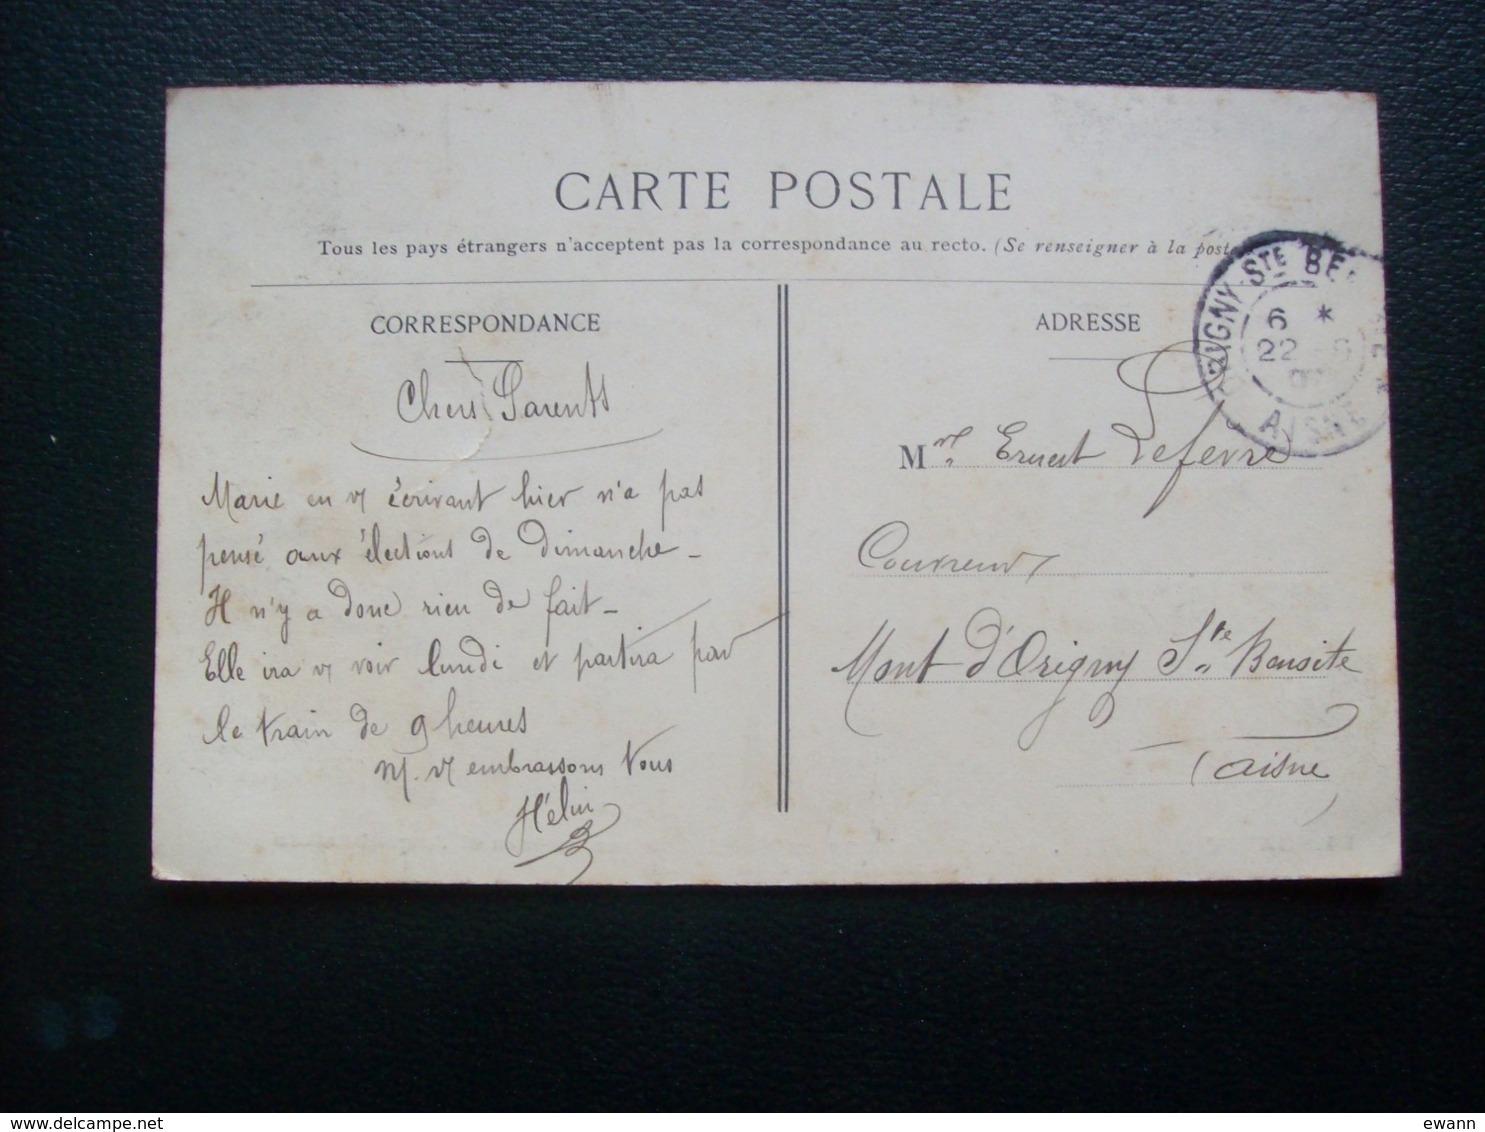 CARTE POSTALE
Tous les pays étrangers n'acceptent pas la correspondance au recto. (Se renseigner à la poste
CORRESPONDANCE
Chers Parents
Marie en v/ écrivant hier n'a pas
pensé aux élections de Dimanche -
Il n'y a donc rien de fait -
Elle ira v/ voir lundi et partira par
le train de 9 heures
N/. v/ embrassons tous
ADRESSE
Mr. Ernest Lefevre
Couvreur
Mont d'Origny Ste Benoite
(aisne)
ORIGNY-STE BE
6 *
22
AISNE
delcampe.net
ewann